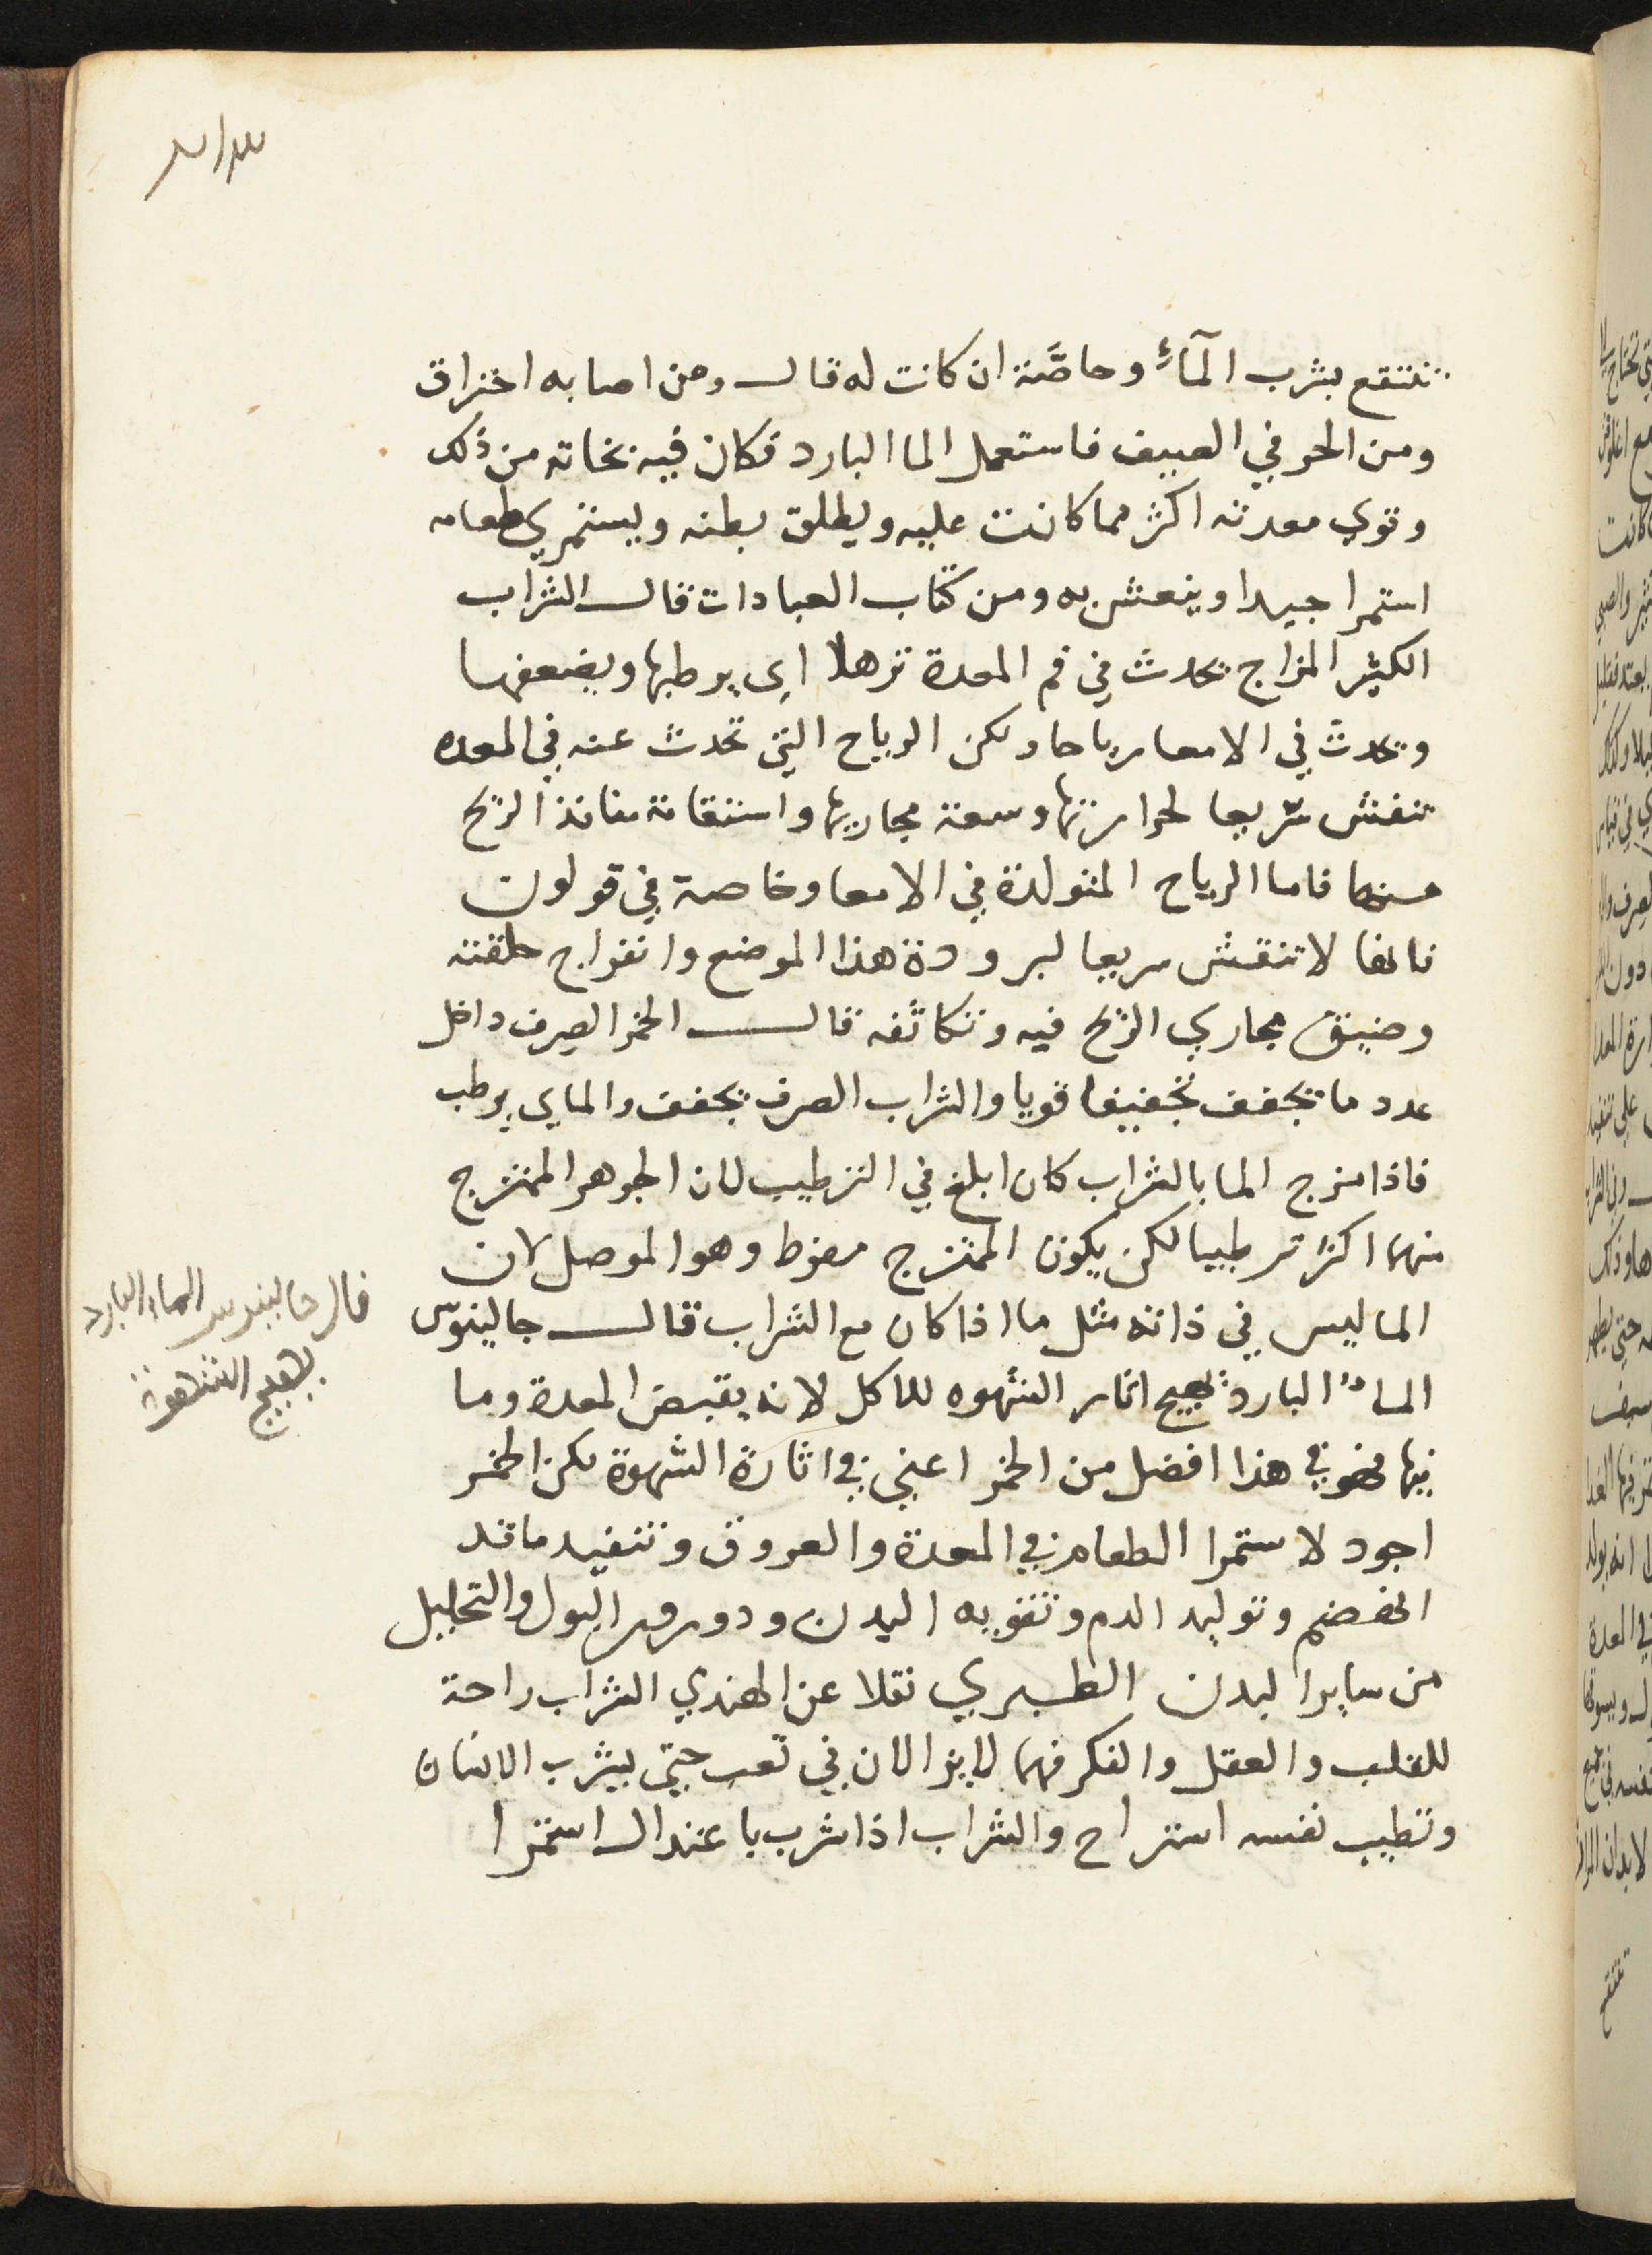 تنتفع بشرب المآء وحاصَّة ان كانت له قال ومن اصابه احتراق
ومن الحر في الصيف فاستعمل الما البارد فكان فيه نجاته من ذلك
وتوي معدته اكثر مما كانت عليه ويطلق بطنه ويستمري طعامه
استمرا جيدا وينعش به ومن كتاب العبادات قال الشراب
الكثير المزاج يحدث في فم المعدة ترهلا اى يرطبها ويضعفها
ويحدث في الامعا رياحا ولكن الرياح التي تحدث عنه في المعده
تنفش سريعا لحرارتها وسعة مجاريها واستقامة منافذ الريح
منها فاما الرياح المتولدة في الامعا وخاصة في قولون
فانها لا تنفش سريعا لبرودة هذا الموضع وانفراج خلقته
وضيق مجاري الريح فيه وتكاثفه قال الخمر الصرف داخل
عدد ما يجفف تجفيفا قويا والشراب الصرف يجفف والماى يرطب
فاذا مزج الما بالشراب كان ابلغ في الترطيب لان الجوهر الممتزج
منهما اكثر ترطيبا لكى يكون الممتزج مفرط وهو الموصل لان
الما ليس في ذاته مثل ما اذا كان مع الشراب قال جالينوس
الماء البارد يهيج اثار الشهوه للاكل لانه يقبض المعدة وما
فيها فهو في هذا افضل من الخمر اعني في اثارة الشهوة لكن الخمر
اجود لاستمرا الطعام في المعدة والعروق وتنفيد ما قد
انهضم وتوليد الدم وتقويه البدن ودرور البول والتحليل
من ساير البدن الطبري نقلا عن الهندي الشراب راحة
للقلب والعقل والفكر فهما لا يزالان في تعب حتى يشرب الانسان
وتطيب نفسه استراح والشراب اذا شرب باعتدال استمرا
قال جالينوس الماء البارد
يهيج الشهوة